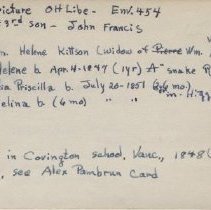 icture OHLibe- Env. 454
3rd son - John Francis
m. Helene Kittson (widow of Pierre Wm.
Helene b. Apr. 4-1847 (1yr) A- snake R
ia Priscilla b. July 20-1851
elina b (6 mo) " "
in Covington school, Vanc., 1848
, see Alex Pambrun Card